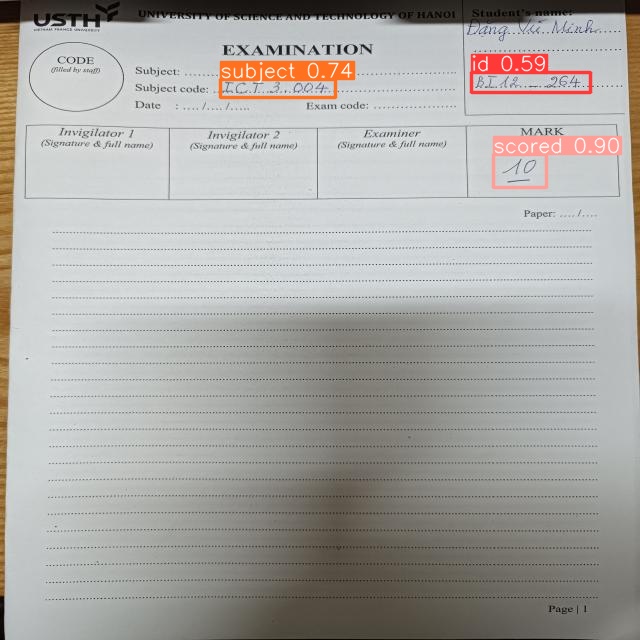 USTH
VIETNAM FRANCE UNIVERSITY
UNIVERSITY OF SCIENCE AND TECHNOLOGY OF HANOI
Student's name:
Đặng Vũ Minh
EXAMINATION
CODE
(filled by staff)
Subject:
subject 0.74
id 0.59
Subject code: ICT 3.004
BI12 - 264
Date : …./…./….. Exam code:
Invigilator 1
(Signature & full name)
Invigilator 2
(Signature & full name)
Examiner
(Signature & full name)
MARK
scored 0.90
10
Paper: …./….
Page | 1